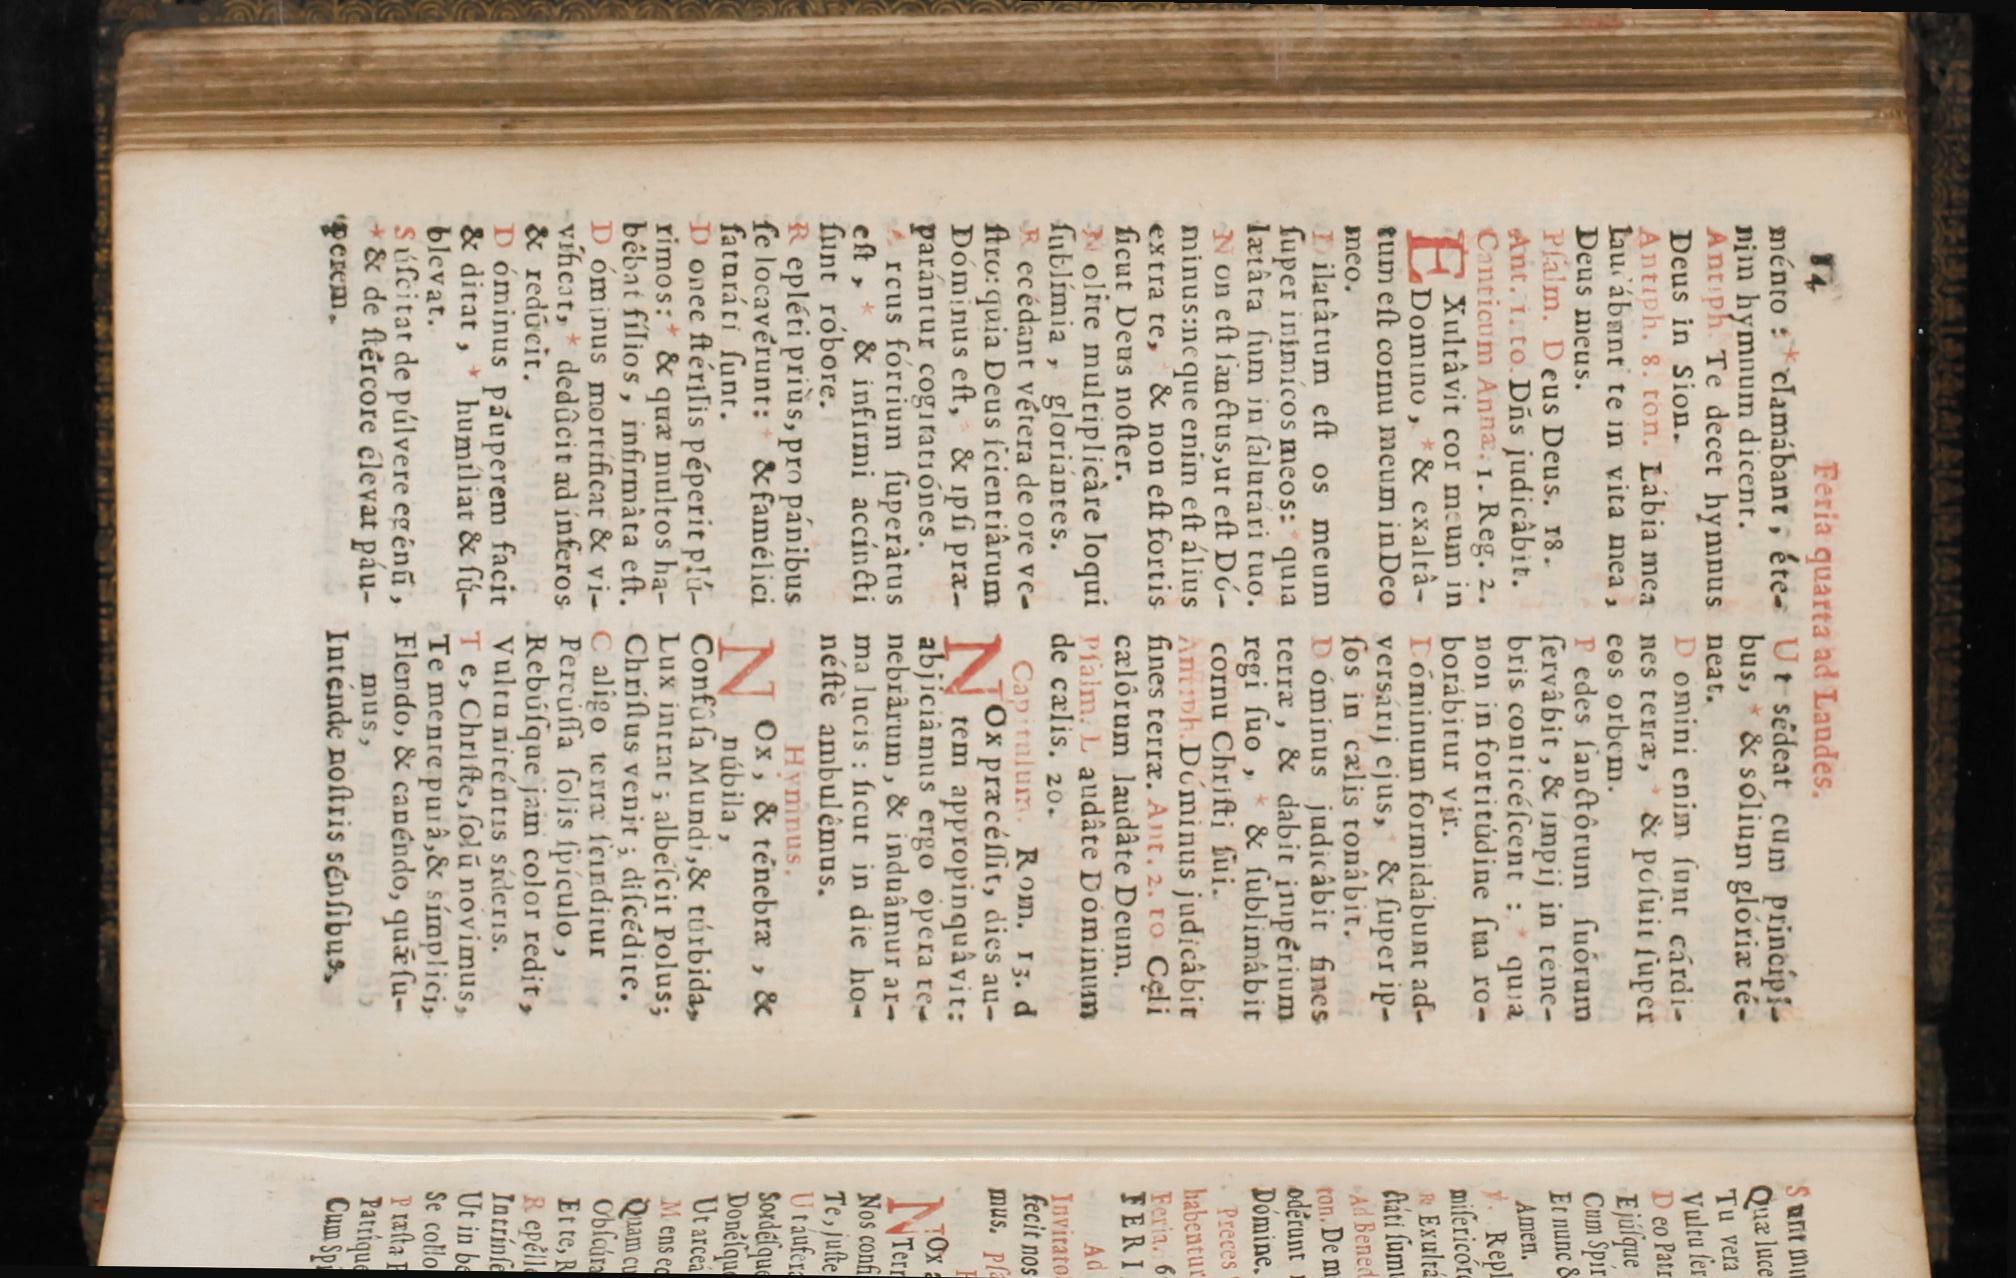 14 Feria quarta ad Laudes.
ménto : * clamábant, éte-
nim hymnum dicent.
Antiph. Te decet hymnus
Deus in Sion.
Antiph. 8. ton. Lábia mea
laudábant te in vita mea,
Deus meus.
Psalm. Deus Deus. 18.
Ant. 1. to. Dñs judicâbit.
Canticum Annæ. 1. Reg. 2.
EXultâvit cor meum in
Domino, * & exaltâ-
tum est cornu meum in Deo
meo.
Dilatâtum est os meum
super inimícos meos: * quia
lætâta sum in salutári tuo.
Non est sanctus, ut est Dó-
minus: neque enim est álius
extra te, * & non est fortis
sicut Deus noster.
Nolite multiplicâre loqui
sublímia, * gloriántes.
Recédant vétera de ore ve-
stro: quia Deus scientiârum
Dóminus est, * & ipsi præ-
parántur cogitatiónes.
Arcus fórtium superàtus
est, * & infirmi accíncti
sunt róbore.
Repléti priùs, pro pánibus
se locavérunt: * & famélici
saturáti sunt.
Donec stérilis péperit plú-
rimos: * & quæ multos ha-
bêbat fílios, infirmàta est.
Dóminus mortíficat & vi-
víficat, * dedûcit ad ínferos
& redûcit.
Dóminus páuperem facit
& ditat, * humíliat & sú-
blevat.
Súscitat de púlvere egénū,
* & de stércore élevat páu-
perem.
Ut sédeat cum princípi-
bus, * & sólium glóriæ té-
neat.
Domini enim sunt cárdi-
nes terræ, * & posuit super
eos orbem.
Pedes sanctôrum suórum
servâbit, & ímpij in téne-
bris conticéscent : * quia
non in fortitúdine sua ro-
borábitur vir.
Dóminum formidábunt ad-
versárij ejus, * & super ip-
sos in cælis tonâbit.
Dóminus judicâbit fines
terræ, & dabit impérium
regi suo, * & sublimâbit
cornu Christi sui.
Antiph. Dóminus judicâbit
fines terræ. Ant. 2. to Cęli
cælôrum laudâte Deum.
Psalm. Laudâte Dóminum
de cælis. 20.
Capitulum. Rom. 13. d
NOx præcéssit, dies au-
tem appropinquâvit:
abjiciâmus ergo ópera te-
nebrârum, & induâmur ar-
ma lucis : sicut in die ho-
néstè ambulêmus.
Hymnus.
NOx, & ténebræ, &
núbila,
Confûsa Mundi, & túrbida,
Lux intrat ; albéscit Polus;
Christus venit ; discédite.
Caligo terræ scinditur
Percússa solis spículo,
Rebúsque jam color redit,
Vultu niténtis síderis.
Te, Christe, solū nóvimus,
Te mente purâ, & símplici,
Flendo, & canéndo, quǽsu-
mus,
Inténde nostris sénsibus,
Sunt mu
Quæ luce
Tu vera
Vultu ser
Deo Patr
Ejúsque
Cum Spír
Et nunc &
Amen.
℣. Repl
misericór
℟ Exultá
ctáti sumu
Ad Bened
ton. De m
odérunt n
Dómine.
Preces
habentur
Feria. 6
FERI
Ad
Invitato
fecit nos
mus. Psa
NOx a
Terr
Nos confi
Te, juste
Ut auferá
Sordésque
Donésque
Ut arceá
Mens ec
Quam cu
Obscúra
Et te, R
Repélle
Intrínse
Ut in be
Se collo
Præsta P
Patríque
Cum Spí